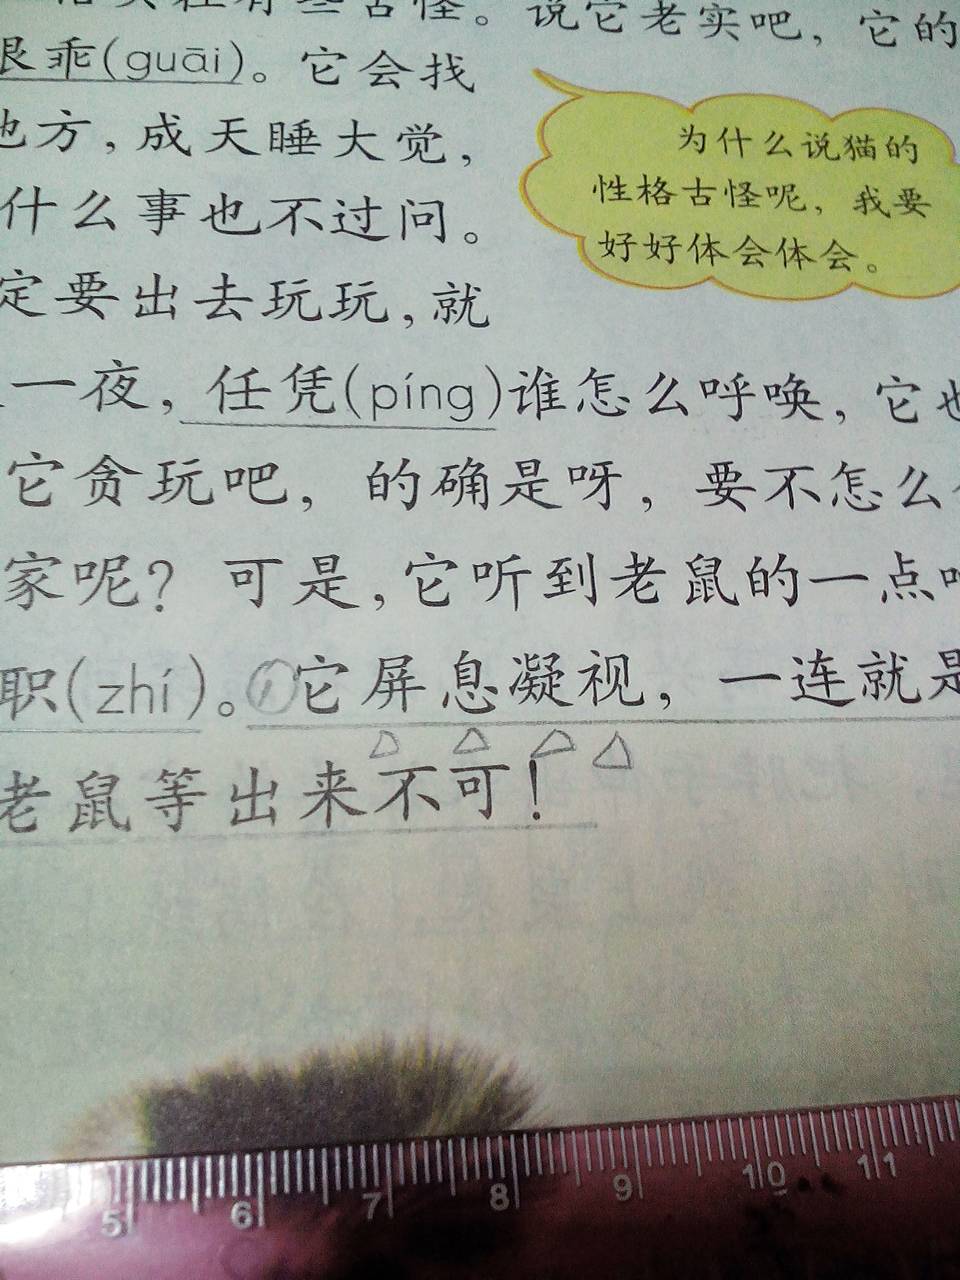 实在有些古怪。说它老实吧，它的
很乖(guāi)。它会找
地方，成天睡大觉，
什么事也不过问。
定要出去玩玩，就
一夜，任凭(píng)谁怎么呼唤，它也
它贪玩吧，的确是呀，要不怎么
家呢？可是，它听到老鼠的一点
职(zhí)。①它屏息凝视，一连就是
老鼠等出来不可！
为什么说猫的
性格古怪呢，我要
好好体会体会。
5 6 7 8 9 10 11